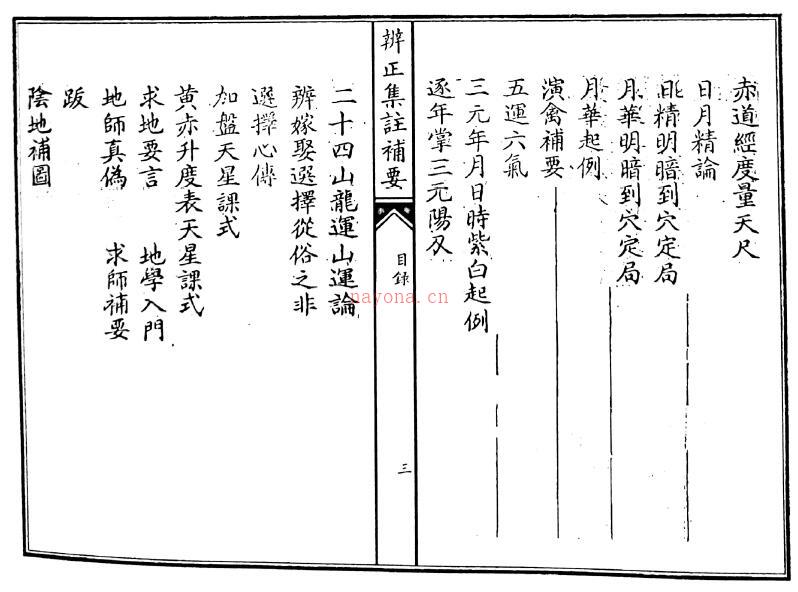 赤道經度量天尺
日月精論
日精明暗到穴定局
月華明暗到穴定局
月華起例
演禽補要
五運六氣
三元年月日時紫白起例
逐年掌三元陽刃
辨正集註補要
目錄
三
二十四山龍運山運論
辨嫁娶選擇從俗之非
選擇心傳
加盤天星課式
黃赤升度表天星課式
求地要言 地學入門
地師真偽 求師補要
跋
陰地補圖
nayona.cn